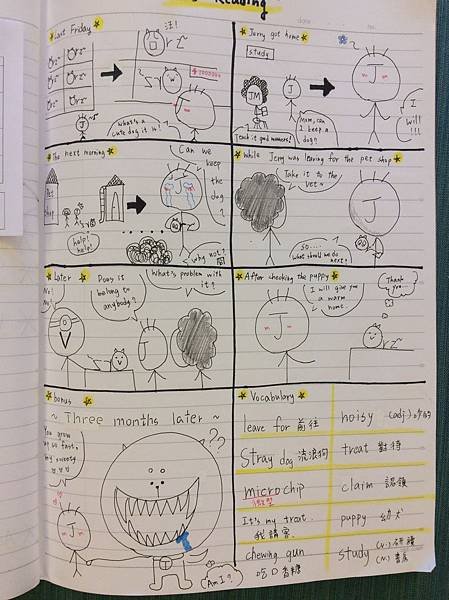 Reading
Last Friday
注!
$2000000
What's a cute dog it is!
Jerry got home
study
JM
Teach it good manners!
Mom, can I keep a dog?
J
I will!!!
The next morning
Pet shop
help! help!
Can we keep the dog?
why not?
While Jerry was leaving for the pet shop
Take it to the vet~
J
so....
what should we do next?
Later
No! No!
Does it belong to anybody?
What's problem with it?
J
After checking the puppy
I will give you a warm home.
Thank you~
J
Bonus
~ Three months later ~
You grow up so fast, my sweety
J
??
Am I?
Vocabulary
leave for 前往
noisy (adj.) 吵的
Stray dog 流浪狗
treat 對待
microchip
claim 認領
It's my treat.
我請客
puppy 幼犬
chewing gun
吃口香糖
study (v.) 研讀
(n.) 書房